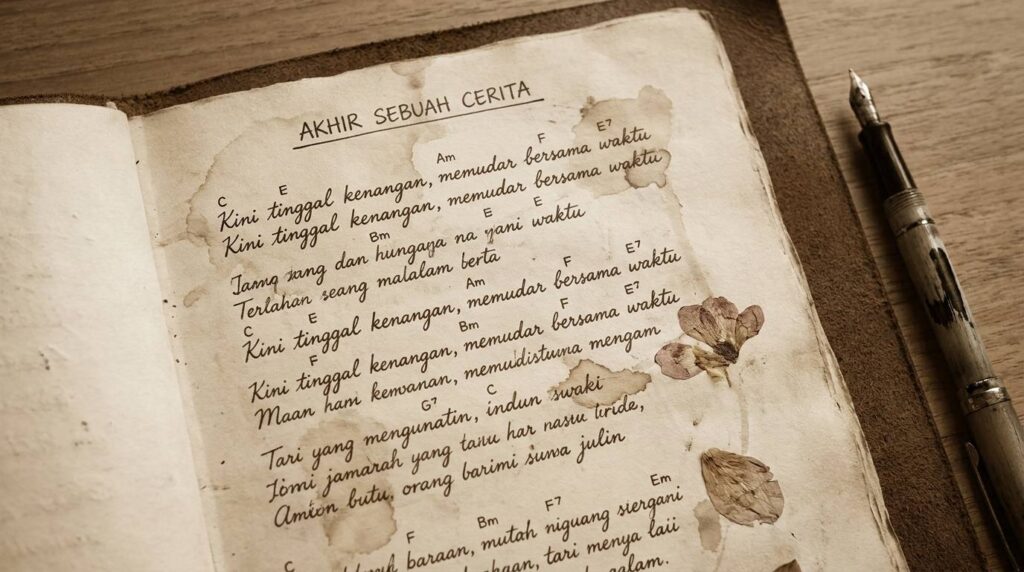 AKHIR SEBUAH CERITA
C E Am F E7
Kini tinggal kenangan, memudar bersama waktu
Kini tinggal kenangan, memudar bersama waktu
Bm E E
dan hungaya na yani waktu
Terlahan seang malalam berta
C E Am F E7
Kini tinggal kenangan, memudar bersama waktu
F Bm F E7
Kini tinggal kenangan, memudar bersama waktu
Maan ham kewanan, mengam
G7 C
Tari yang mengunatin, indun swaki
jamarah yang tanu har nasu
butu, orang barimi suwa julin
C F Bm F7 Em
baraan, mutah niguang siergani
tari menya laii